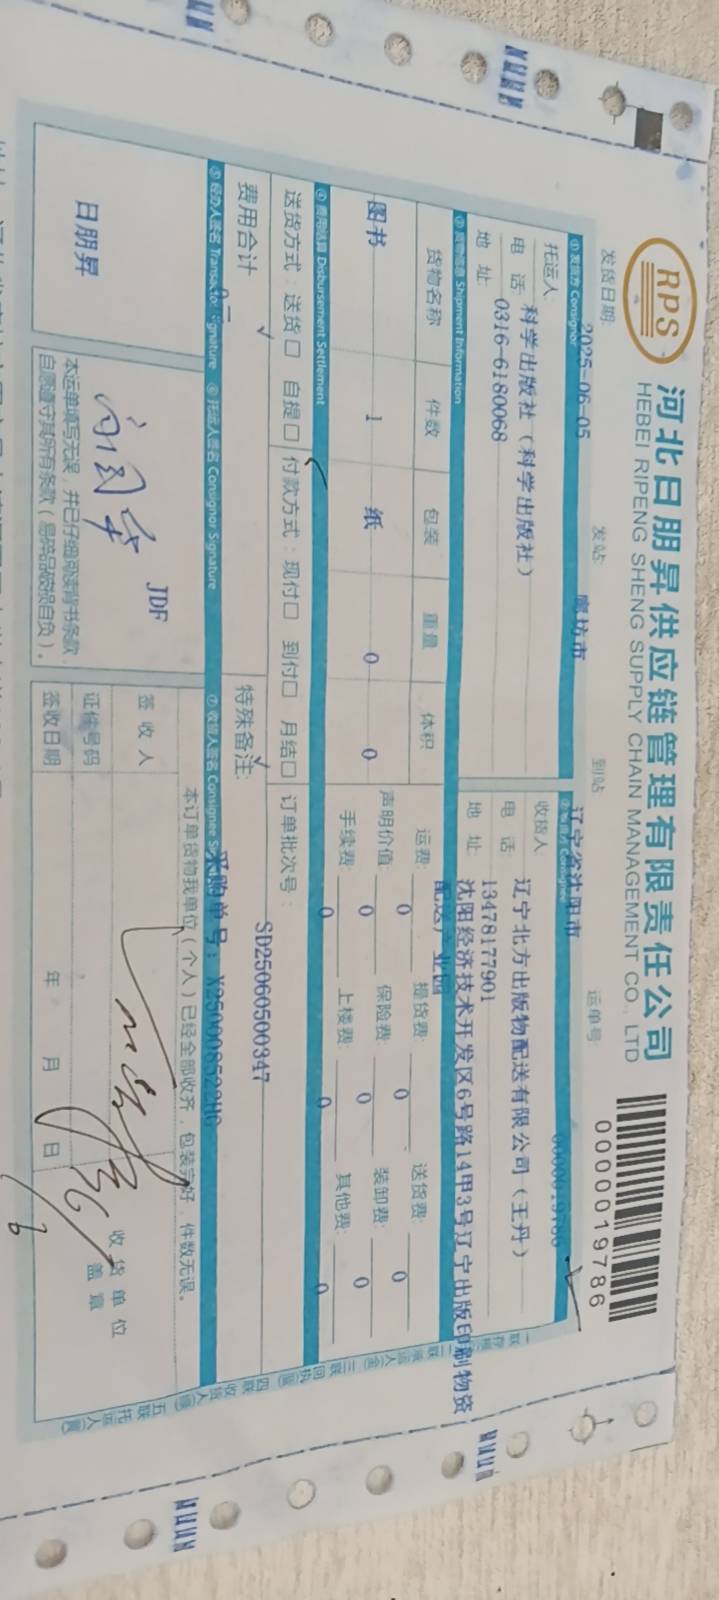 RPS
河北日朋昇供应链管理有限责任公司
HEBEI RIPENG SHENG SUPPLY CHAIN MANAGEMENT CO., LTD
0000019786
发货日期: 2025-06-05 发站 廊坊市 到站 辽宁省沈阳市 运单号: 0000019786
① 发货方 Consignor
托运人: 科学出版社(科学出版社)
电 话: 0316-6180068
地 址:
收货人: 辽宁北方出版物配送有限公司(王丹)
电 话: 13478177901
地 址: 沈阳经济技术开发区6号路14甲3号辽宁出版印刷物资
配送产业园
③ 货物信息 Shipment Information
货物名称 件数 包装 重量 体积
图书 1 纸 0 0
运费: 0 提货费: 0 送货费: 0
声明价值: 0 保险费: 0 装卸费: 0
手续费: 0 上楼费: 0 其他费: 0
④ 费用结算 Disbursement Settlement
送货方式:送货□ 自提□ 付款方式:现付□ 到付□ 月结□ 订单批次号: SD25060500347
费用合计 特殊备注: 采购单号: X250008522HG
⑤ 经办人签名 Transactor Signature ⑥ 托运人签名 Consignor Signature ⑦ 收货人签名 Consignee
日朋昇
JDF
本运单填写无误,并已仔细阅读背书条款,
自愿遵守其所有条款(易碎品破损自负)。
本订单货物我单位(个人)已经全部收齐,包装完好,件数无误。
签收人
证件号码
签收日期 年 月 日
收货单位
盖章